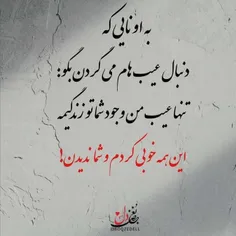 به اونایی که
دنبال عیب هام می گردن بگو:
تنها عیب من وجود شما تو زندگیمه
این همه خوبی کردم و شما ندیدن!